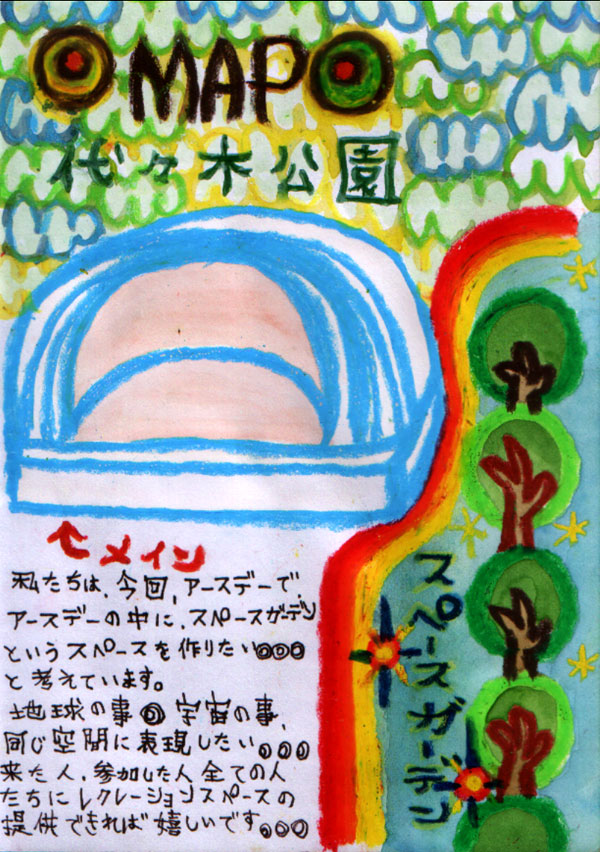 MAP
代々木公園
←メイン
私たちは、今回、アースデーで、
アースデーの中に、スペースガーデン
というスペースを作りたい。。。
と考えています。
地球の事。宇宙の事、
同じ空間に表現したい。。。。
来た人、参加した人全ての人
たちにレクレーションスペースの
提供できれば嬉しいです。。。。
スペースガーデン